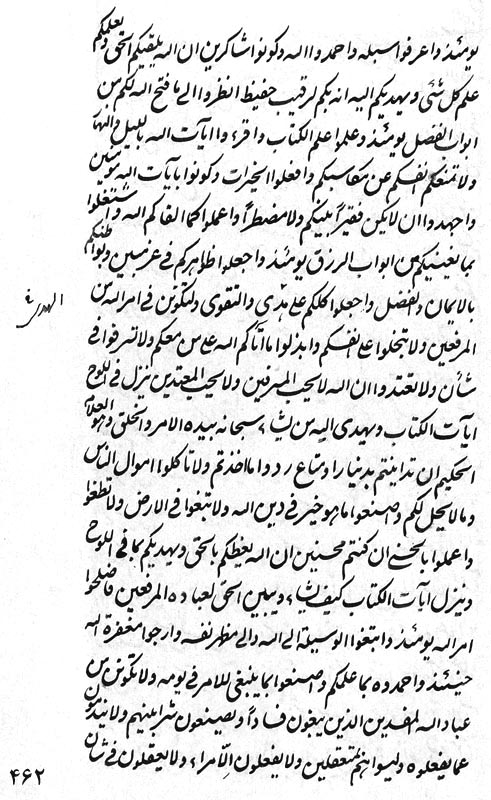 يومئذ واعرفوا سبله واحمدوا الله وكونوا شاكرين ان الله يلقيكم الحق ويعلمكم
علم كل شئ ويهديكم اليه انه بكم لرقيب حفيظ انظروا الى ما فتح الله لكم من
ابواب الفضل يومئذ وعلموا علم الكتاب واقرءوا ايات الله بالليل والنهار
ولا تمنعكم انفسكم عن مكاسبكم وافعلوا الخيرات وكونوا بايات الله موقنين
واجهدوا ان لا يكن فقيراً بينكم ولا مضطراً واعملوا كما القاكم الله واشتغلوا
بما يغنيكم من ابواب الرزق يومئذ واجعلوا ظاهركم في عز مبين وبواطنكم
بالايمان والفضل واجعلوا كلكم على هدى والتقوى ولتكونن في امر الله من
الهدى
المرفعين ولا تبخلوا على انفسكم وابذلوا ما اتاكم الله على من معكم ولا تسرفوا في
شأن ولا تعتدوا ان الله لا يحب المسرفين ولا يحب المعتدين نزل في اللوح
ايات الكتاب ويهدى اليه من يشاء سبحانه بيده الامر والخلق وهو العلام
الحكيم ان تداينتم بدينار او متاع ردوا ما اخذتم ولا تاكلوا اموال الناس
وما لا يحل لكم واصنعوا ما هو خير في دين الله ولا تبغوا في الارض ولا تطغوا
واعملوا بالحسنى ان كنتم محسنين ان الله يعظكم بالحق ويهديكم بما في اللوح
وينزل ايات الكتاب كيف يشاء ويبين الحق لعباده المرفعين فاصلحوا
امر الله يومئذ وابتغوا الوسيلة الى الله والى مظهر نفسه وارجوا مغفرة الله
حينئذ واحمدوه بما علمكم واصنعوا بما ينبغى للامر في يومه ولا تكونن من
عباد الله المفسدين الذين يبغون فساداً ويصنعون شراً بينهم ولا يندمون
عما يفعلوه وليسوا هم بمتعقلين ولا يفعلون الا امراء ولا يعقلون في شأن
۴۶۲